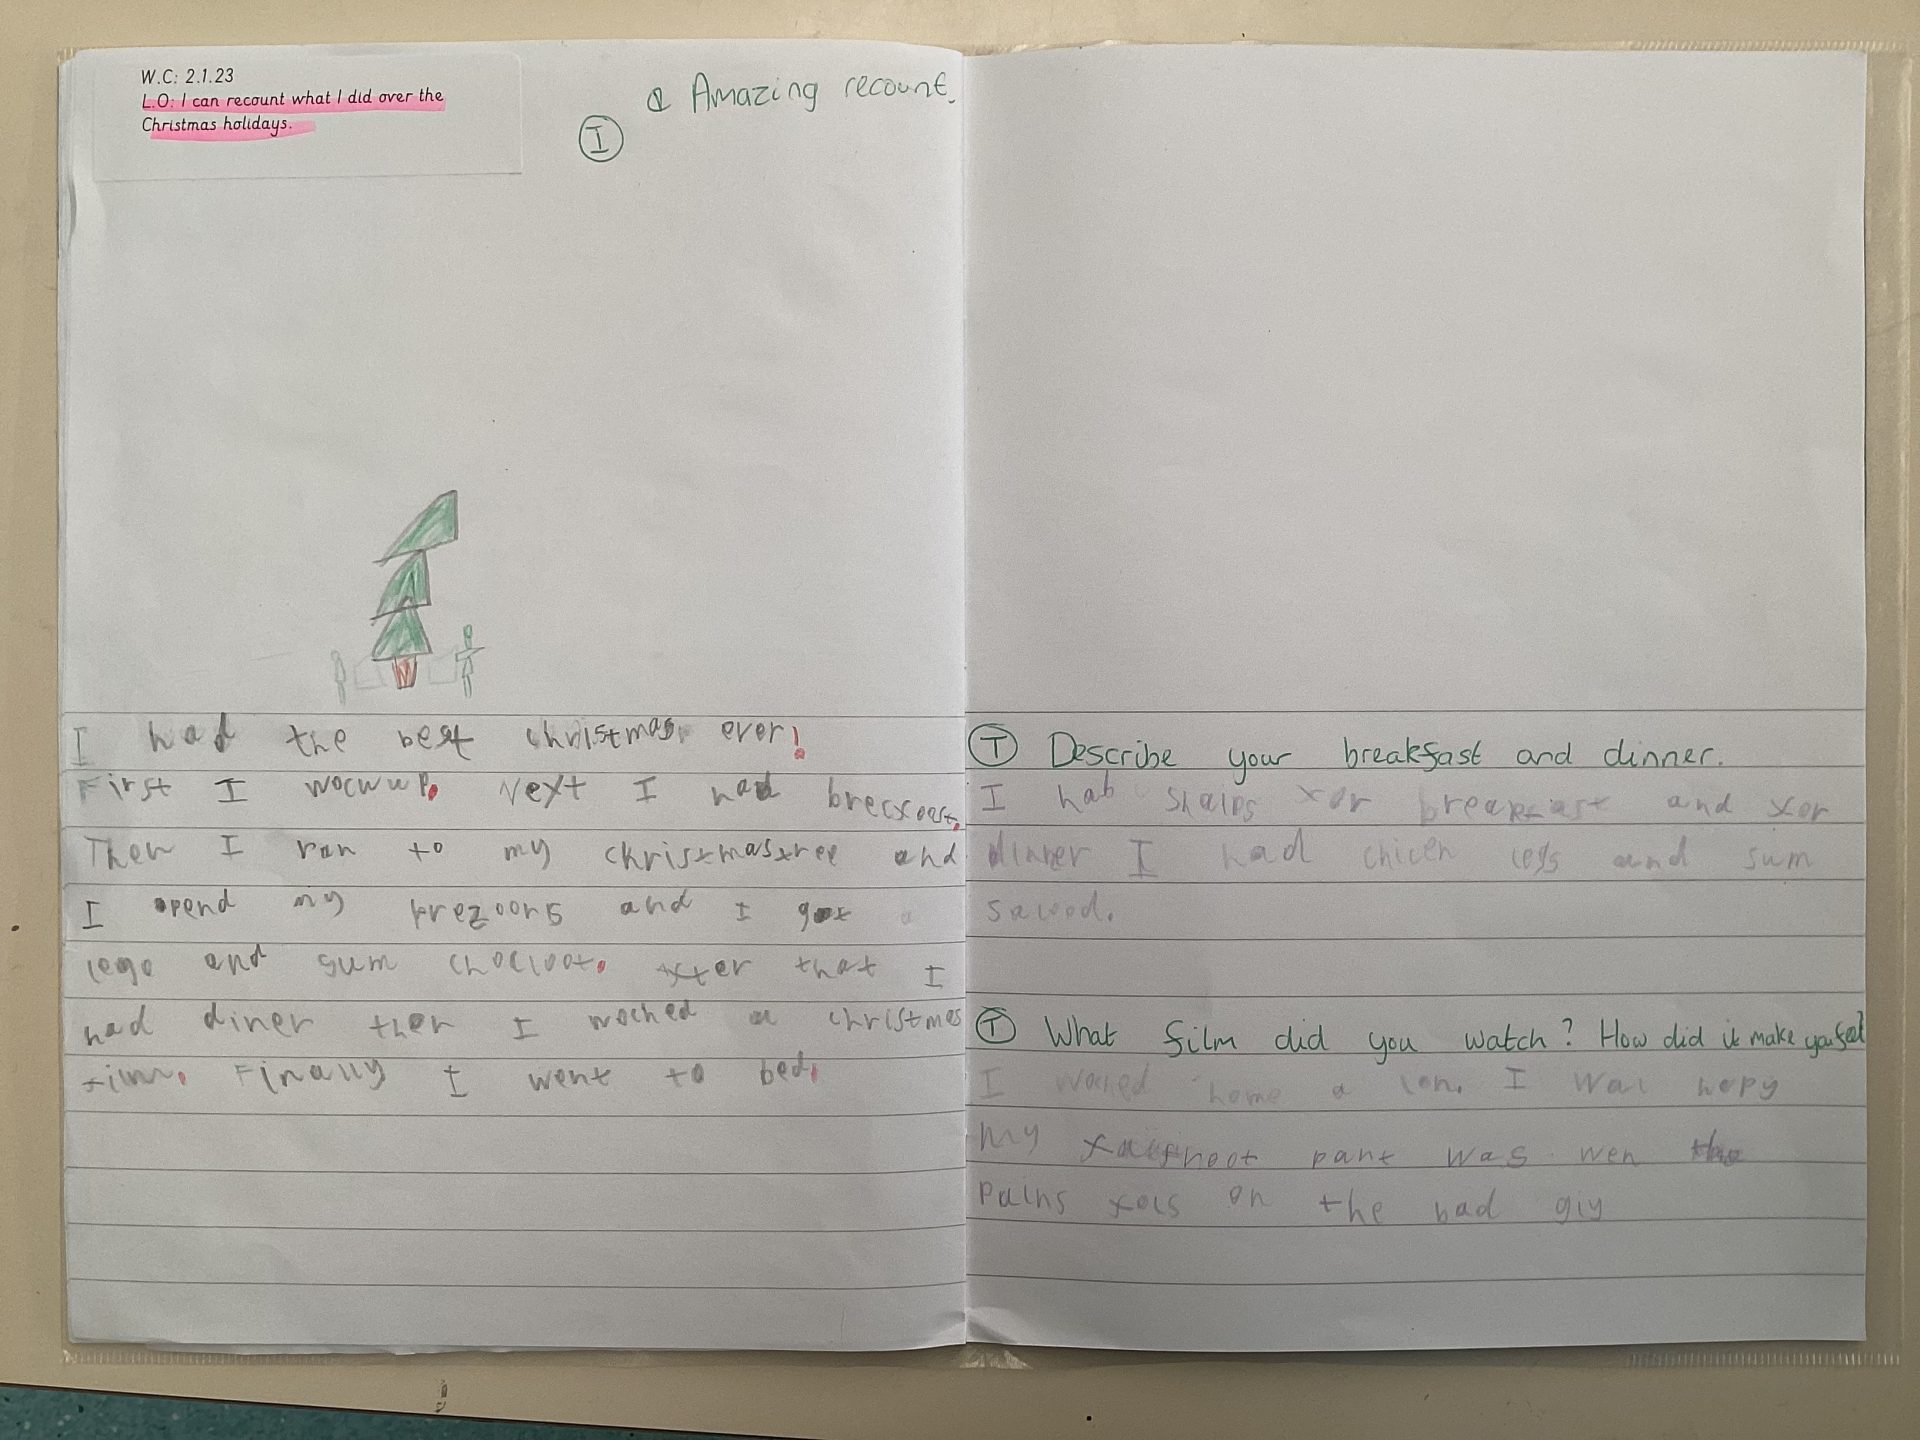 W.C: 2.1.23
L.O: I can recount what I did over the
Christmas holidays.
Amazing recount.
I
I had the best christmas ever!
First I wocwup. Next I had brecxast.
Then I ran to my christmastree and
I opend my prezoons and I got a
lego and sum chocloot. After that I
had diner then I woched a christmas
film. Finally I went to bed.
T Describe your breakfast and dinner.
I hab for breakfast and for
dinner I had chicen legs and sum
salood.
T What film did you watch? How did it make you feel?
I woched home a lon. I was hapy
My part was wen the
pains fols on the bad giy